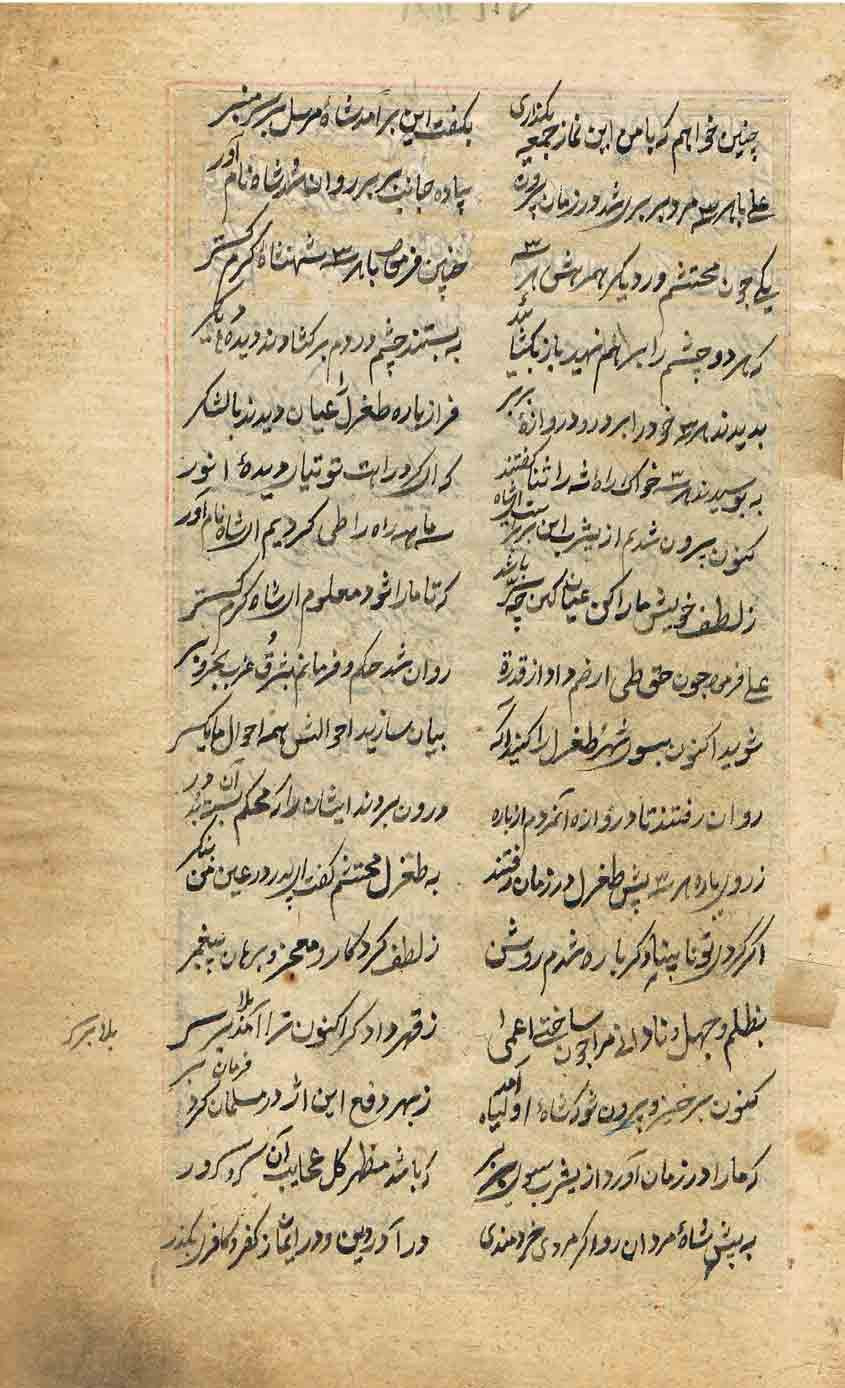 چنین خواهم که با من این نماز جمعه بگذاری بگفت این بر آمد شاه مرسل بر سر منبر
علی با هر سه مرد بربر شد در زمان پیاده جانب بربر روان شد شاه نام آور
یکی چون محتشم ور دیگر همرهش هر سه چنین فرمود با هر سه شهنشاه کرم گستر
که هر دو چشم را بر هم نهید باز بگشائید به بستند چشم در دم بر گشادند دیده دیگر
بدیدند هر سه خود را بر در دروازهٔ بربر فراز باره طغرل را عیان دیدند با لشکر
به بوسیدند هر سه خاک راه شه را ثنا گفتند که ای گرد رهت توتیای دیدهٔ انور
کنون بیرون شدیم از یثرب این بربر است ای شاه سه ماهه راه را طی کردیم ای شاه نام آور
ز لطف خویش ما را کن عیان کین چه سر باشد که تا ما را شود معلوم ای شاه کرم گستر
علی فرمود چون حق طی ارضم داد از قدرة روان شد حکم و فرمانم بشرق و غرب و بحر و بر
شوید اکنون بسوی شهر طغرل را کنید آگه بیان سازید احوالش همه احوال ما یکسر
روان رفتند تا دروازه آنمردم از باره درون بردند ایشان را که محکم بسته بد آن در
ز روی باره هر سه پیش طغرل در زمان رفتند به طغرل محتشم گفت ای پدر در عین من بنگر
اگر کردی تو نابینا دگر باره شدم روشن ز لطف کردگار و معجز و برهان پیغمبر
بظلم و جهل و نادانی مرا چون ساختی اعمی ز قهر دادگر اکنون ترا آمد بلا بر سر
بلا بر سر
کنون برخیز و بیرون شو که شاه اولیاء آمد ز بهر دفع این اژدر مسلمان گرد فرمان بر
که ما را در زمان آورد از یثرب بسوی بربر که باشد مظهر کل عجایب آن سر و سرور
به پیش شاه مردان رو اگر مردی خردمندی در آ در دین و در ایمان ز کفر و کافری بگذر